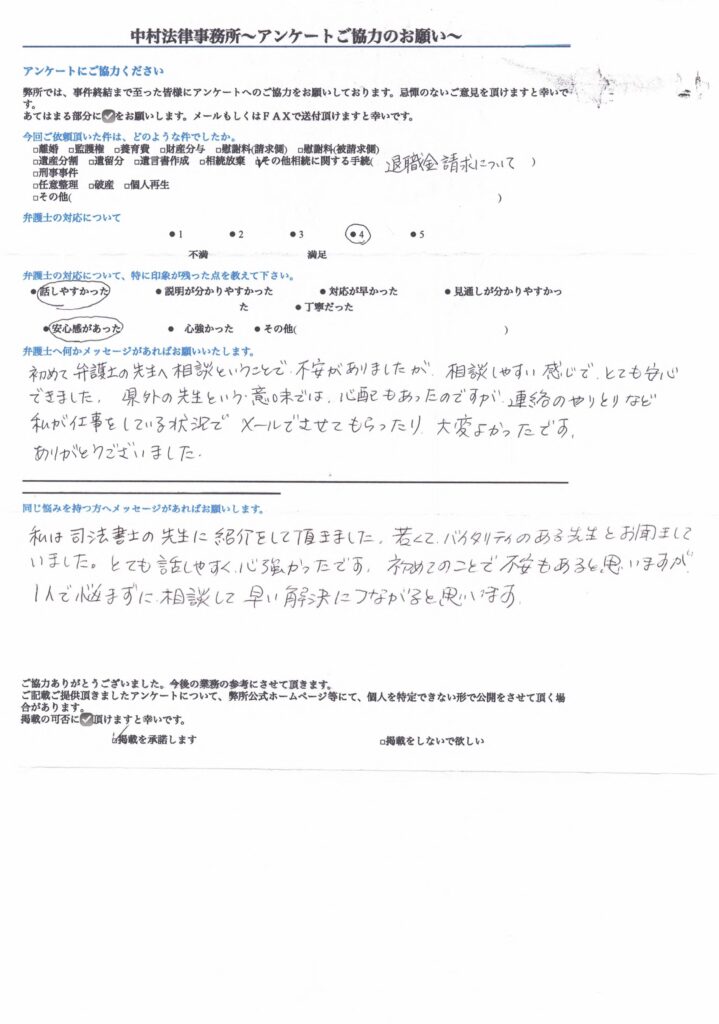 中村法律事務所～アンケートご協力のお願い～
アンケートにご協力ください
弊所では、事件終結まで至った皆様にアンケートへのご協力をお願いしております。忌憚のないご意見を頂けますと幸いで
す。
あてはまる部分に✓をお願いします。メールもしくはＦＡＸで送付頂けますと幸いです。
今回ご依頼頂いた件は、どのような件でしたか。
□離婚 □監護権 □養育費 □財産分与 □慰謝料(請求側) □慰謝料(被請求側)
□遺産分割 □遺留分 □遺言書作成 □相続放棄 ☑その他相続に関する手続( 退職金請求について )
□刑事事件
□任意整理 □破産 □個人再生
□その他( )
弁護士の対応について
●1 ●2 ●3 ●4 ●5
不満 満足
弁護士の対応について、特に印象が残った点を教えて下さい。
●話しやすかった ●説明が分かりやすかった ●対応が早かった ●見通しが分かりやすかっ
た ●丁寧だった
●安心感があった ● 心強かった ●その他( )
弁護士へ何かメッセージがあればお願いいたします。
初めて弁護士の先生へ相談ということで、不安がありましたが、相談しやすい感じで、とても安心
できました。県外の先生という意味では、心配もあったのですが、連絡のやりとりなど
私が仕事をしている状況でメールでさせてもらったり、大変よかったです。
ありがとうございました。
同じ悩みを持つ方へメッセージがあればお願いします。
私は司法書士の先生に紹介をして頂きました。若くて、バイタリティのある先生とお聞きして
いました。とても話しやすく、心強かったです。初めてのことで不安もあると思いますが、
1人で悩まずに、相談して早い解決につながると思います。
ご協力ありがとうございました。今後の業務の参考にさせて頂きます。
ご記載ご提供頂きましたアンケートについて、弊所公式ホームページ等にて、個人を特定できない形で公開をさせて頂く場
合があります。
掲載の可否に✓頂けますと幸いです。
☑掲載を承諾します □掲載をしないで欲しい